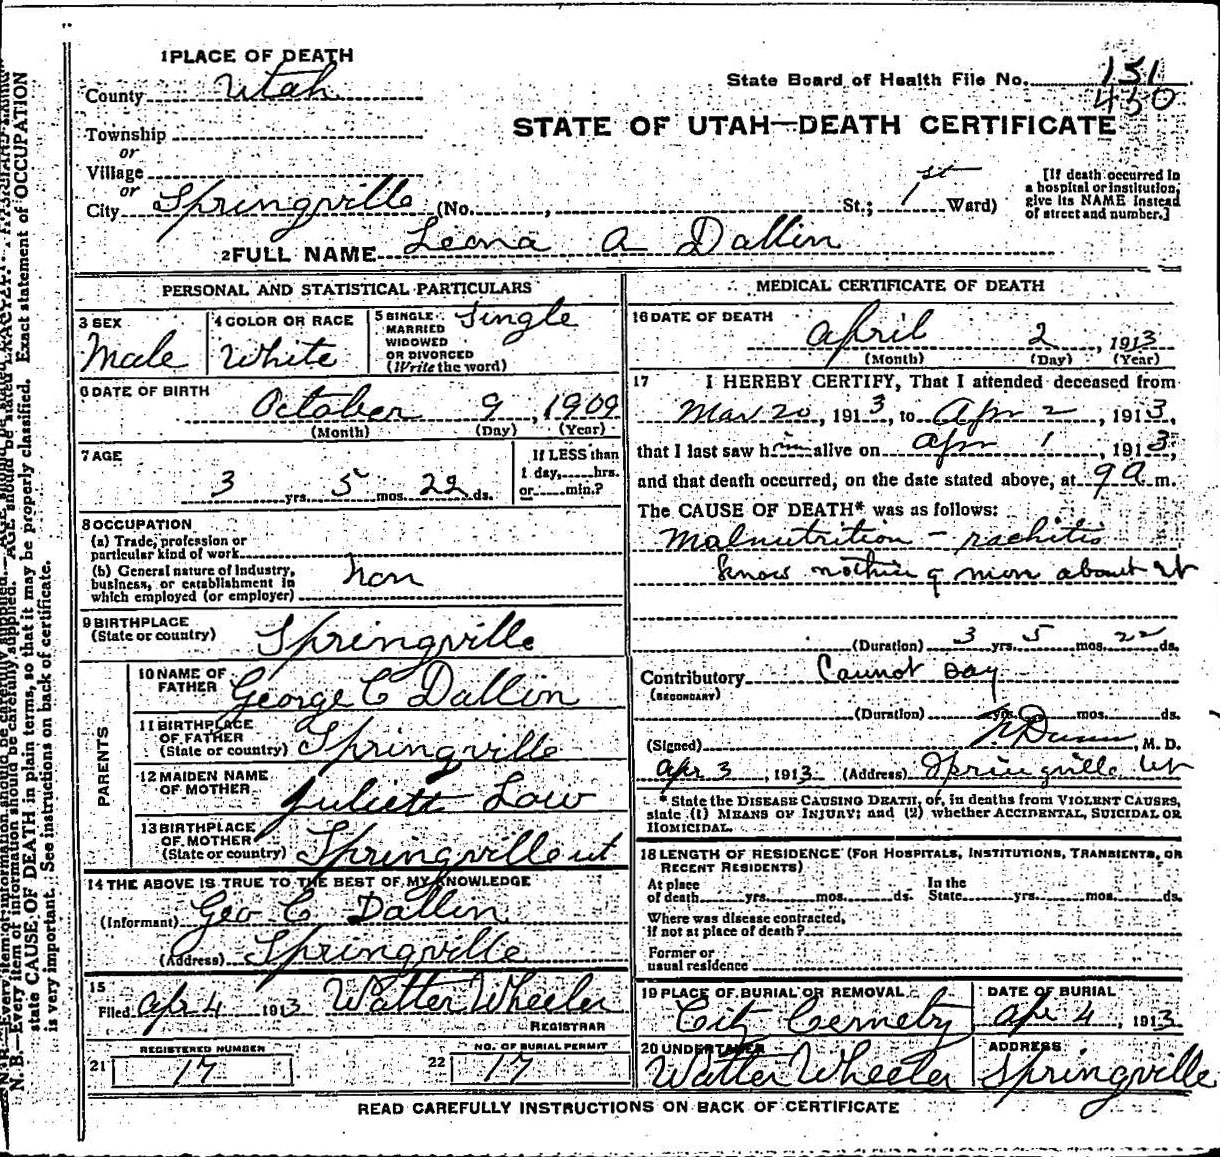 1 PLACE OF DEATH
County Utah
State Board of Health File No. 151
430
Township
or
Village
or
STATE OF UTAH—DEATH CERTIFICATE
City Springville (No. , St.; 1st Ward)
[If death occurred in a hospital or institution, give its NAME instead of street and number.]
2 FULL NAME Leona A Dallin
PERSONAL AND STATISTICAL PARTICULARS
3 SEX Male
4 COLOR OR RACE White
5 SINGLE MARRIED WIDOWED OR DIVORCED (Write the word) Single
6 DATE OF BIRTH
October 9, 1909
(Month) (Day) (Year)
7 AGE
3 yrs. 5 mos. 22 ds.
If LESS than 1 day, hrs. or min.?
8 OCCUPATION
(a) Trade, profession or particular kind of work
(b) General nature of Industry, business, or establishment in which employed (or employer) non
9 BIRTHPLACE (State or country) Springville
PARENTS
10 NAME OF FATHER George C Dallin
11 BIRTHPLACE OF FATHER (State or country) Springville
12 MAIDEN NAME OF MOTHER Juliett Law
13 BIRTHPLACE OF MOTHER (State or country) Springville ut
14 THE ABOVE IS TRUE TO THE BEST OF MY KNOWLEDGE
(Informant) Geo C Dallin
(Address) Springville
15
Filed Apr 4 1913 Walter Wheeler
REGISTRAR
21 REGISTERED NUMBER 17
22 NO. OF BURIAL PERMIT 17
MEDICAL CERTIFICATE OF DEATH
16 DATE OF DEATH
April 2, 1913
(Month) (Day) (Year)
17 I HEREBY CERTIFY, That I attended deceased from
Mar 20, 1913, to Apr 2, 1913,
that I last saw him alive on Apr 1, 1913,
and that death occurred, on the date stated above, at 9 a m.
The CAUSE OF DEATH* was as follows:
Malnutrition - rachitis
Know nothing more about it
(Duration) 3 yrs. 5 mos. 22 ds.
Contributory Cannot say
(SECONDARY)
(Duration) yrs. mos. ds.
(Signed) Dunn, M. D.
Apr 3, 1913 (Address) Springville Ut
* State the DISEASE CAUSING DEATH, or, in deaths from VIOLENT CAUSES,
state (1) MEANS OF INJURY; and (2) whether ACCIDENTAL, SUICIDAL OR
HOMICIDAL.
18 LENGTH OF RESIDENCE (FOR HOSPITALS, INSTITUTIONS, TRANSIENTS, OR
RECENT RESIDENTS)
At place of death yrs. mos. ds. In the State yrs. mos. ds.
Where was disease contracted,
if not at place of death?
Former or
usual residence
19 PLACE OF BURIAL OR REMOVAL
City Cemetry
DATE OF BURIAL
Apr 4, 1913
20 UNDERTAKER
Walter Wheeler
ADDRESS
Springville
READ CAREFULLY INSTRUCTIONS ON BACK OF CERTIFICATE
N. B.—Every item of information should be carefully supplied. AGE should be stated EXACTLY.
state CAUSE OF DEATH in plain terms, so that it may be properly classified. Exact statement of OCCUPATION
is very important. See instructions on back of certificate.